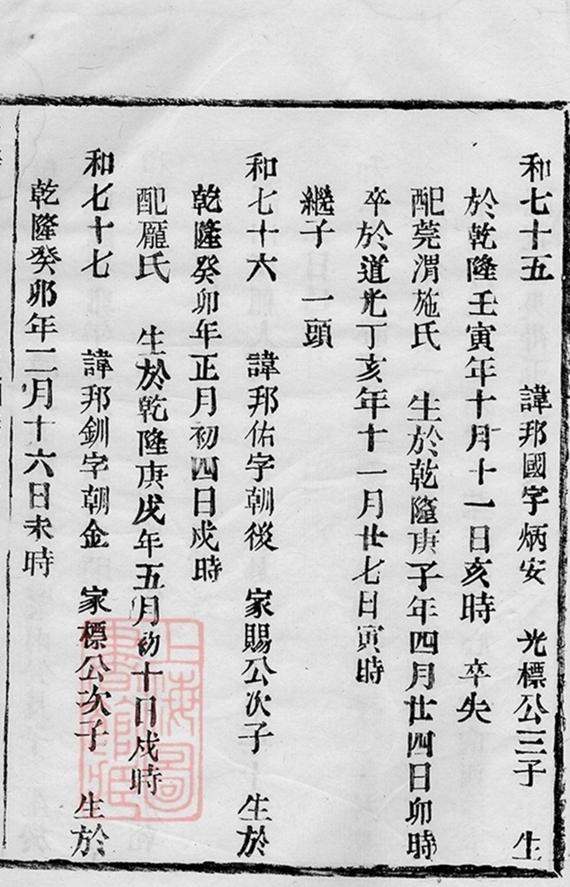 和七十五　諱邦國字炳安　光標公三子　生
於乾隆壬寅年十月十一日亥時　卒失
配莞渭施氏　生於乾隆庚子年四月廿四日卯時
卒於道光丁亥年十一月廿七日寅時
繼子　一頭
和七十六　諱邦佑字朝後　家賜公次子　生於
乾隆癸卯年正月初四日戌時
配龐氏　生於乾隆庚戌年五月初十日戌時
和七十七　諱邦釧字朝金　家標公次子　生於
乾隆癸卯年二月十六日未時
上海圖
書館藏